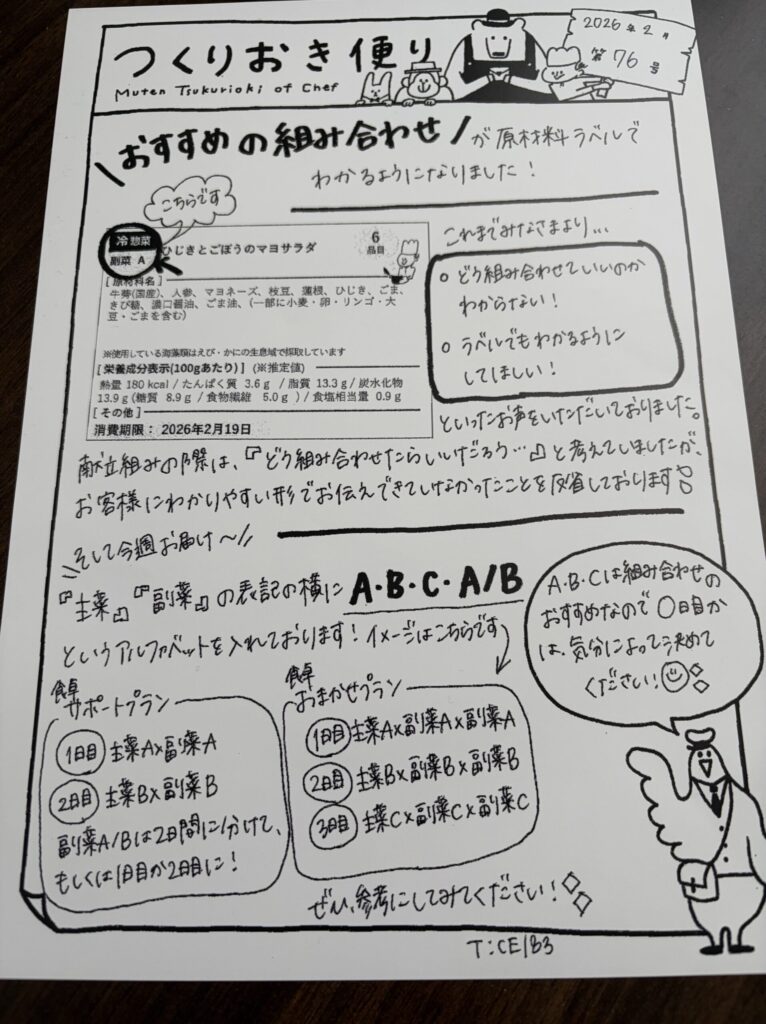 つくりおき便り
Muten Tsukurioki of Chef
2026年2月
第76号
\おすすめの組み合わせ/が原材料ラベルで
わかるようになりました！
こちらです
冷惣菜
副菜 A
ひじきとごぼうのマヨサラダ
6
品目
[ 原材料名 ]
牛蒡(国産)、人参、マヨネーズ、枝豆、蓮根、ひじき、ごま、
きび糖、濃口醤油、ごま油、(一部に小麦・卵・リンゴ・大
豆・ごまを含む)
※使用している海藻類はえび・かにの生息域で採取しています
[ 栄養成分表示(100gあたり) ] (※推定値)
熱量 180 kcal / たんぱく質 3.6 g / 脂質 13.3 g / 炭水化物
13.9 g (糖質 8.9 g / 食物繊維 5.0 g ) / 食塩相当量 0.9 g
[ その他 ]
消費期限： 2026年2月19日
これまでみなさまより…
○ どう組み合わせていいのか
わからない！
○ ラベルでもわかるように
してほしい！
といったお声をいただいておりました。
献立組みの際は、『どう組み合わせたらいいだろう…』と考えていましたが、
お客様にわかりやすい形でお伝えできていなかったことを反省しております
\そして今週お届け〜//
『主菜』『副菜』の表記の横に A・B・C・A/B
というアルファベットを入れております！イメージはこちらです
A・B・Cは組み合わせの
おすすめなので〇日目か
は、気分によって決めて
ください！
食卓
サポートプラン
1日目 主菜A×副菜A
2日目 主菜B×副菜B
副菜A/Bは2日間に分けて、
もしくは1日目か2日目に！
食卓
おまかせプラン
1日目 主菜A×副菜A×副菜A
2日目 主菜B×副菜B×副菜B
3日目 主菜C×副菜C×副菜C
ぜひ、参考にしてみてください！
T:CE/B3